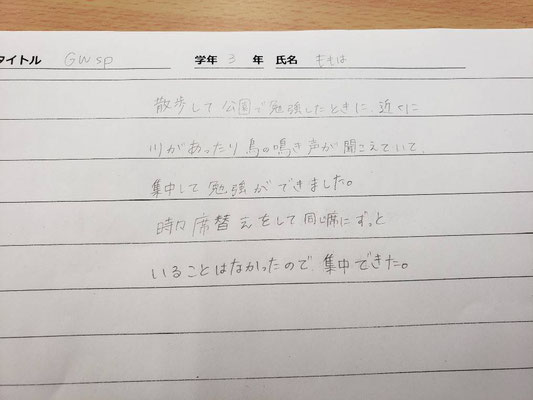 タイトル GWsp 学年 3 年 氏名 もそは
散歩して公園で勉強したときに、近くに
川があったり鳥の鳴き声が聞こえていて、
集中して勉強ができました。
時々席替えをして同じ席にずっと
いることはなかったので、集中できた。